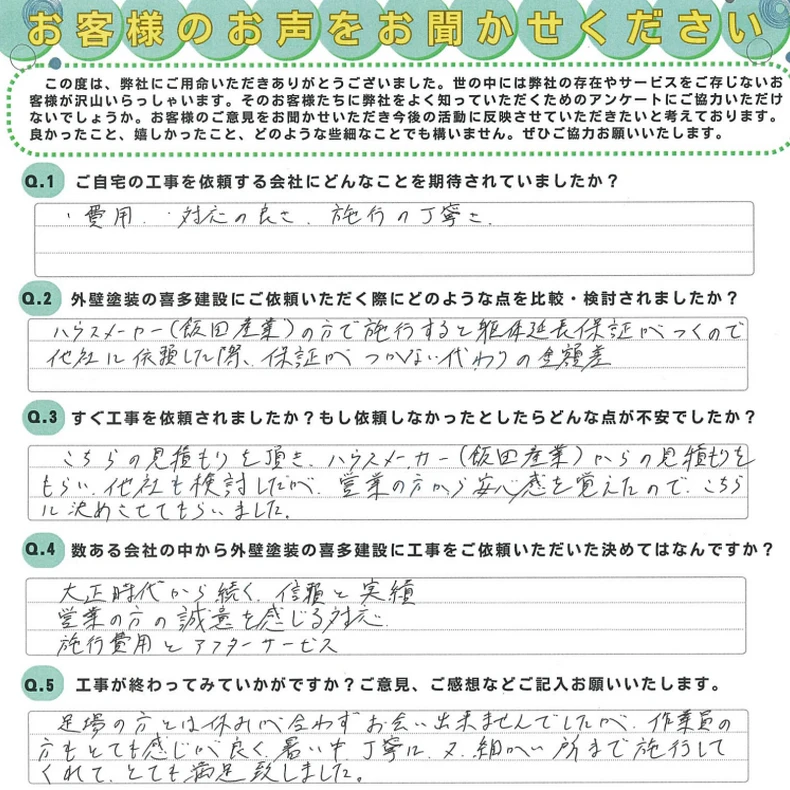 お客様のお声をお聞かせください
この度は、弊社にご用命いただきありがとうございました。世の中には弊社の存在やサービスをご存じないお
客様が沢山いらっしゃいます。そのお客様たちに弊社をよく知っていただくためのアンケートにご協力いただけ
ないでしょうか。お客様のご意見をお聞かせいただき今後の活動に反映させていただきたいと考えております。
良かったこと、嬉しかったこと、どのような些細なことでも構いません。ぜひご協力お願いいたします。
Q.1 ご自宅の工事を依頼する会社にどんなことを期待されていましたか？
・費用、・対応の良さ、施行の丁寧さ、
Q.2 外壁塗装の喜多建設にご依頼いただく際にどのような点を比較・検討されましたか？
ハウスメーカー(飯田産業)の方で施行すると躯体延長保証がつくので
他社に依頼した際、保証がつかない代わりの金額差
Q.3 すぐ工事を依頼されましたか？もし依頼しなかったとしたらどんな点が不安でしたか？
こちらの見積もりを頂き、ハウスメーカー(飯田産業)からの見積もりを
もらい、他社も検討したが、営業の方から安心感を覚えたので、こちら
に決めさせてもらいました。
Q.4 数ある会社の中から外壁塗装の喜多建設に工事をご依頼いただいた決めてはなんですか？
大正時代から続く、信頼と実績
営業の方の誠意を感じる対応
施行費用とアフターサービス
Q.5 工事が終わってみていかがですか？ご意見、ご感想などご記入お願いいたします。
足場の方とは休みが合わずお会い出来ませんでしたが、作業員の
方もとても感じが良く、暑い中、丁寧に、又、細かい所まで施行して
くれて、とても満足致しました。